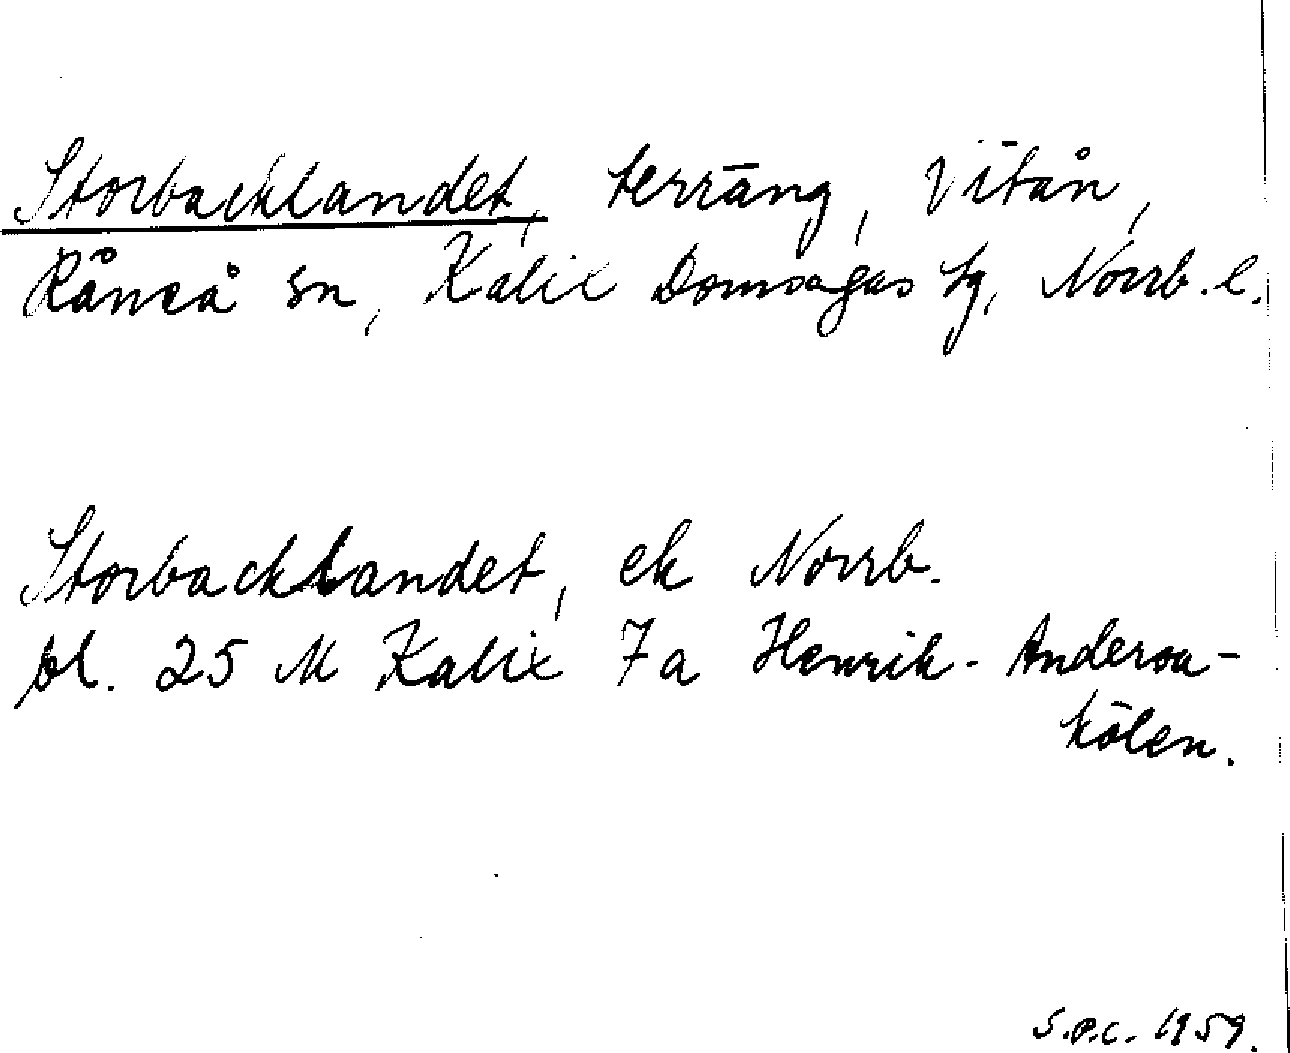 Storbacklandet, terräng, Vitån,
Råneå sn, Kalix Domsagas tg, Norrb. l.
Storbacklandet, ek Norrb.
bl. 25 M Kalix 7a Henrik-Andersa-
kölen.
S.P.C. 1959.